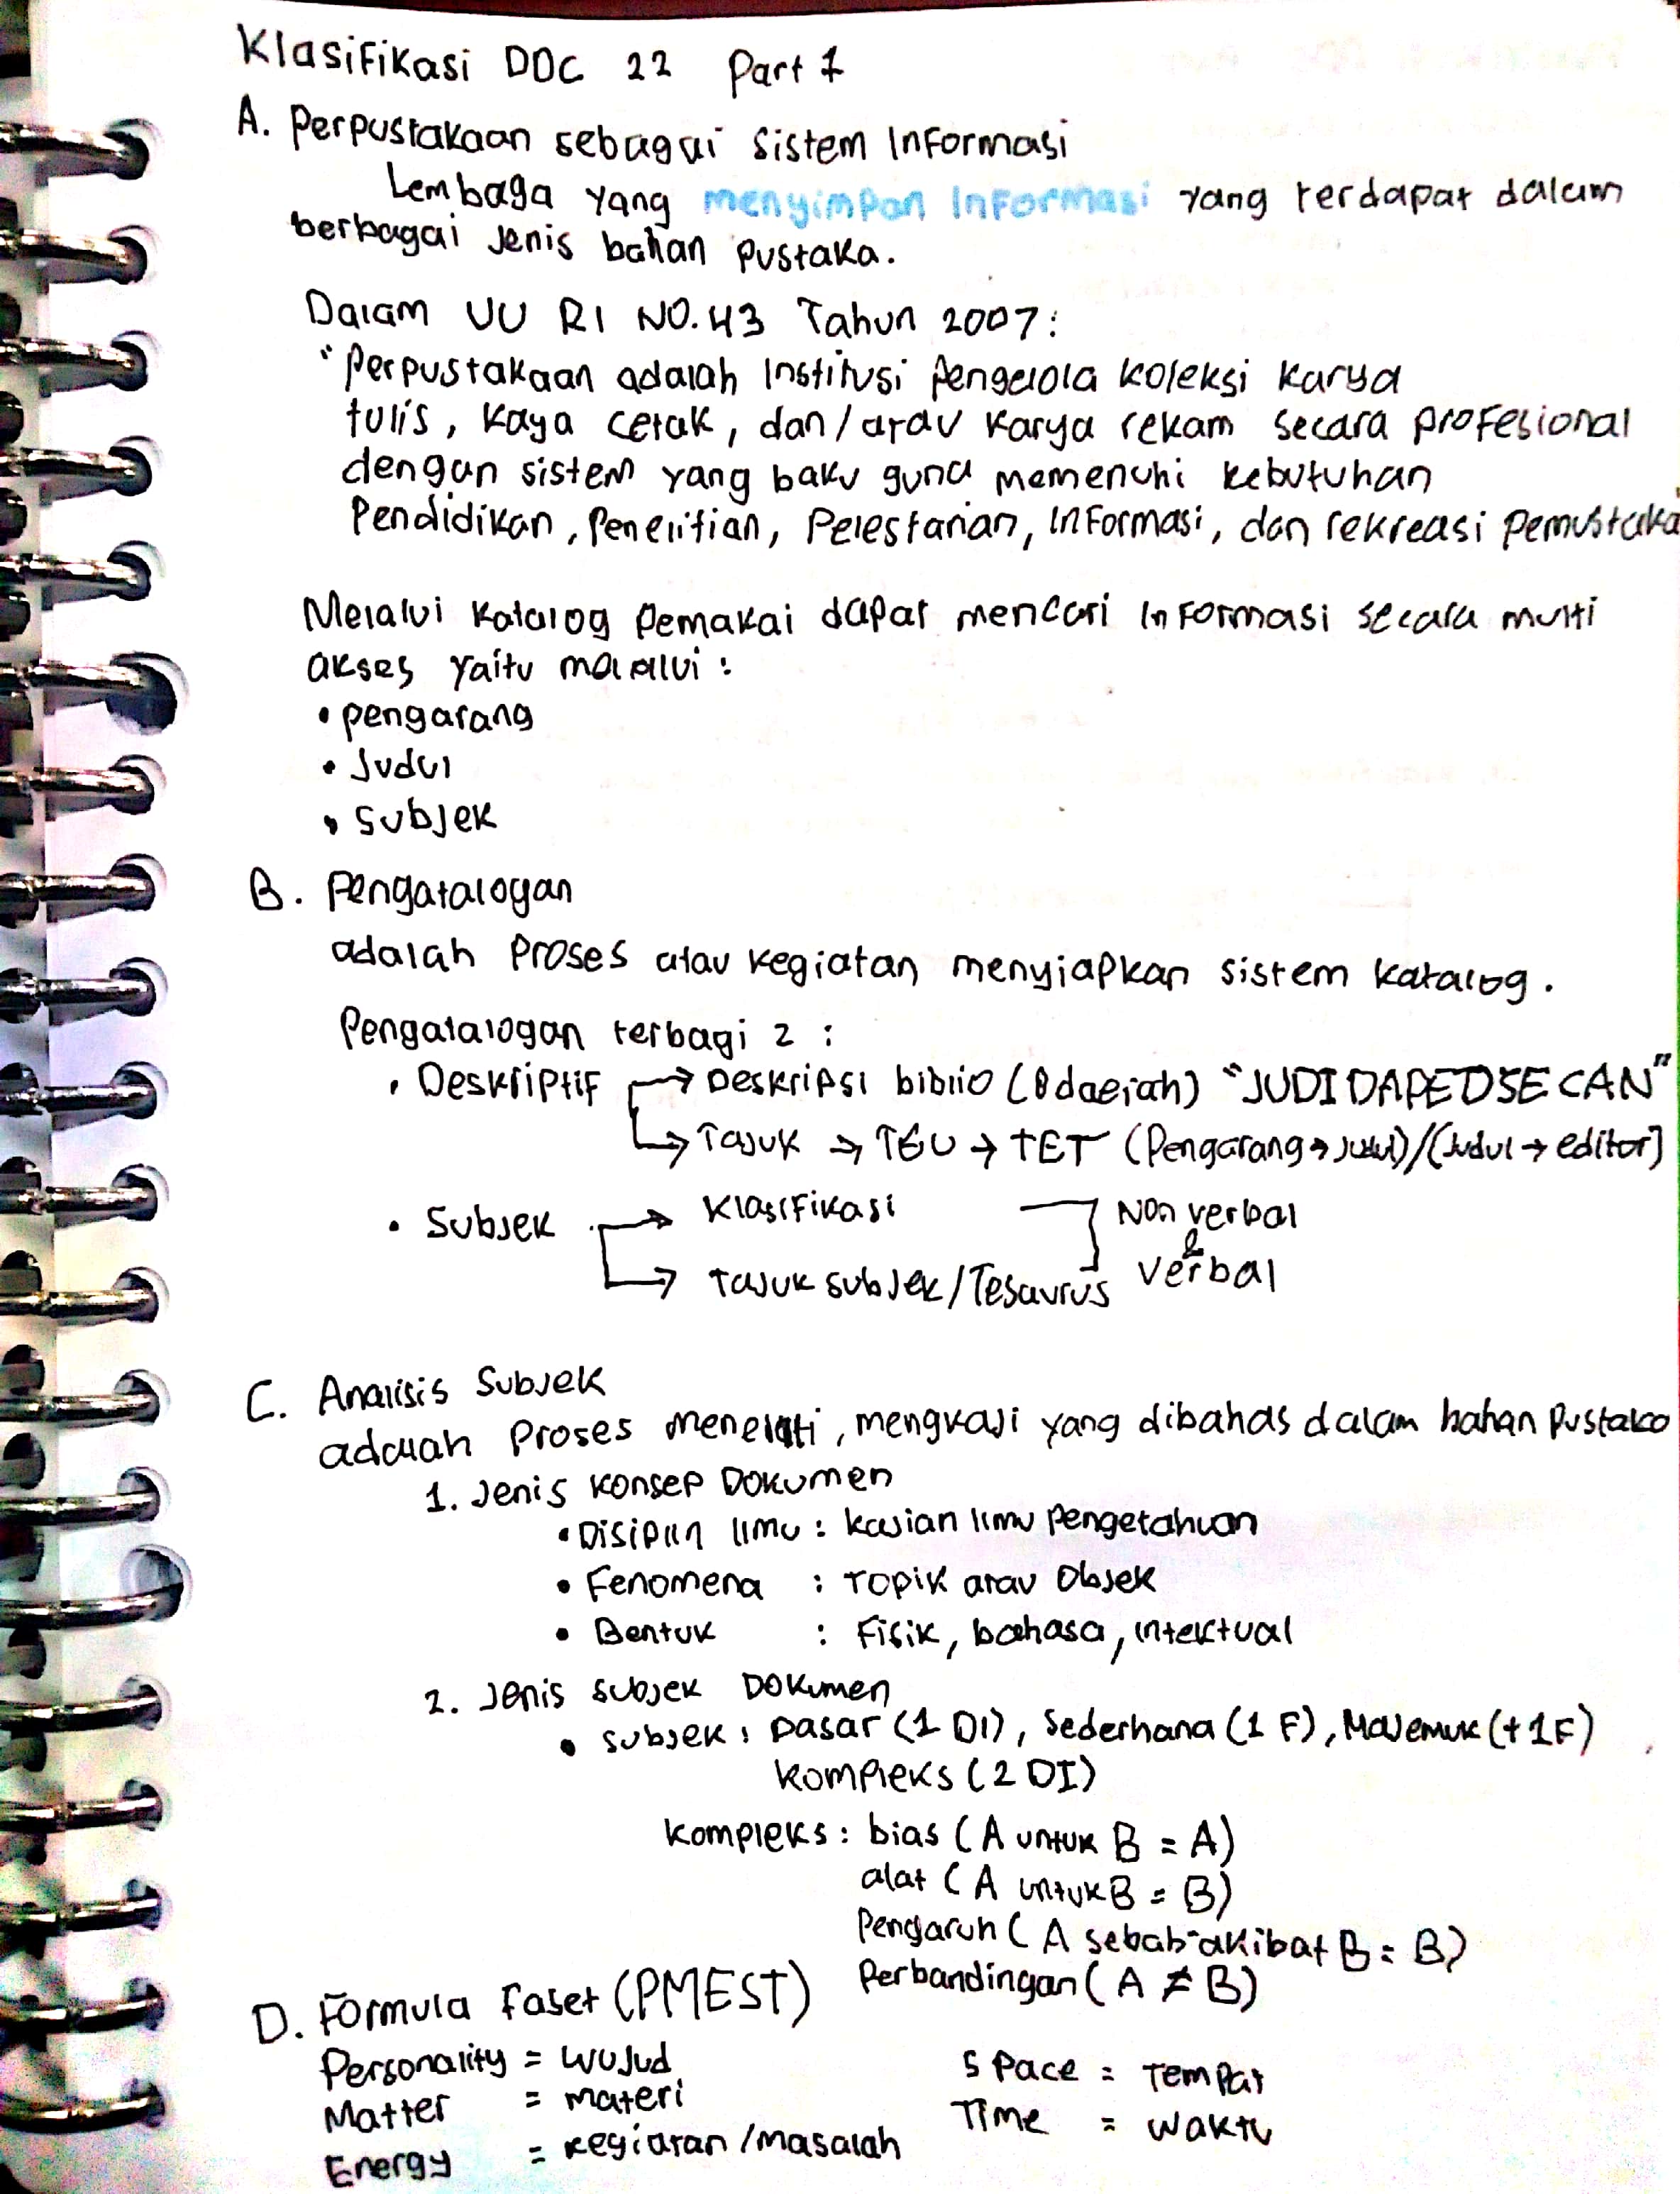 Klasifikasi DDC 22 Part 1
A. Perpustakaan sebagai Sistem Informasi
Lembaga yang menyimpan Informasi yang terdapat dalam
berbagai jenis bahan pustaka.
Dalam UU RI NO.43 Tahun 2007:
"Perpustakaan adalah Institusi pengelola koleksi karya
tulis, kaya cetak, dan/atau karya rekam secara profesional
dengan sistem yang baku guna memenuhi kebutuhan
Pendidikan, Penelitian, Pelestarian, Informasi, dan rekreasi pemustaka
Melalui katalog pemakai dapat mencari Informasi secara multi
akses yaitu malalui :
• pengarang
• Judul
• Subjek
B. Pengatalogan
adalah Proses atau kegiatan menyiapkan sistem katalog.
Pengatalogan terbagi 2 :
• Deskriptif → Deskripsi biblio (8 daerah) "JUDIDAPEDSECAN"
→ Tajuk → TEU → TET (Pengarang → Judul)/(Judul → editor)
• Subjek → Klasifikasi Non verbal
&
→ Tajuk subjek/Tesaurus verbal
C. Analisis Subjek
adalah Proses meneliti, mengkaji yang dibahas dalam bahan Pustaka
1. Jenis Konsep Dokumen
• Disiplin Ilmu : kajian Ilmu Pengetahuan
• Fenomena : Topik atau Objek
• Bentuk : Fisik, bahasa, intektual
2. Jenis subjek Dokumen
• subjek : Dasar (1 DI), Sederhana (1 F), Majemuk (+1F)
kompleks (2 DI)
kompleks : bias (A untuk B = A)
alat (A untuk B = B)
Pengaruh (A sebab-akibat B = B)
Perbandingan (A ≠ B)
D. Formula Faset (PMEST)
Personality = Wujud Space = Tempat
Matter = materi Time = waktu
Energy = kegiatan/masalah